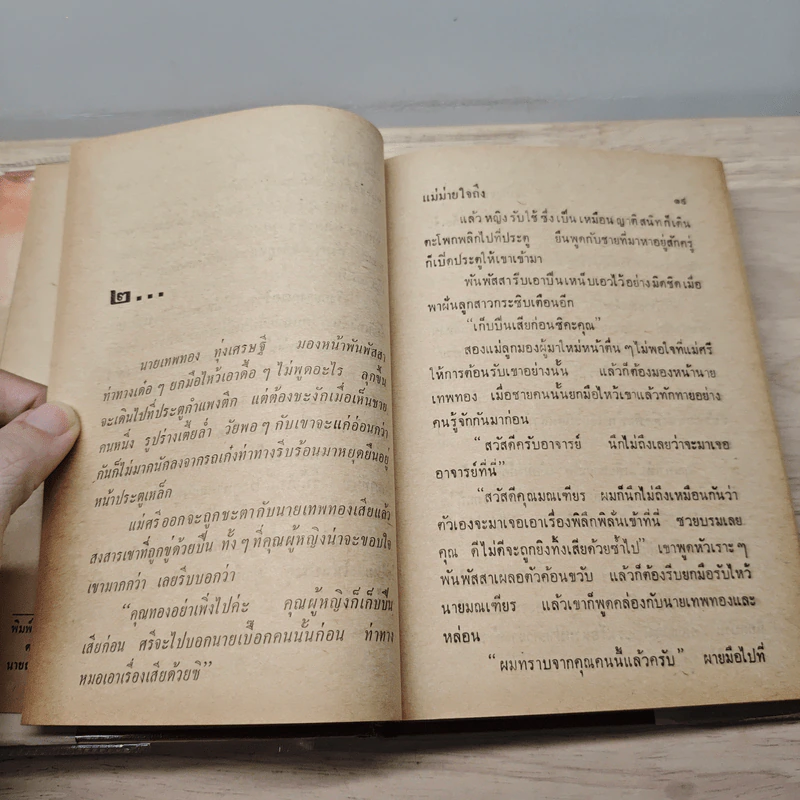 ๒...
นายเทพทอง ทุ่งเศรษฐี มองหน้าพันพัสสา
ท่าทางเด๋อ ๆ ยกมือไหว้เอาดื้อ ๆ ไม่พูดอะไร ลุกขึ้น
จะเดินไปที่ประตูกำแพงตึก แต่ต้องชะงักเมื่อเห็นชาย
คนหนึ่ง รูปร่างเตี้ยล่ำ วัยพอ ๆ กับเขาจะแก่อ่อนกว่า
กันก็ไม่มากนักลงจากรถเก๋งท่าทางรีบร้อนมาหยุดยืนอยู่
หน้าประตูเหล็ก
แม่ศรีออกจะถูกชะตากับนายเทพทองเสียแล้ว
สงสารเขาที่ถูกขู่ด้วยปืน ทั้ง ๆ ที่คุณผู้หญิงน่าจะขอบใจ
เขามากกว่า เลยรีบบอกว่า
“คุณทองอย่าเพิ่งไปค่ะ คุณผู้หญิงก็เก็บปืน
เสียก่อน ศรีจะไปบอกนายเบือกคนนั้นก่อน ท่าทาง
หมอเอาเรื่องเสียด้วยซิ”
พิมพ์
นาย
แม่ม่ายใจถึง ๑๕
แล้ว หญิง รับใช้ ซึ่ง เป็น เหมือน ญาติ สนิท ก็ เดิน
ตะโพกพลิกไปที่ประตู ยืนพูดกับชายที่มาหาอยู่สักครู่
ก็เปิดประตูให้เขาเข้ามา
พันพัสสารีบเอาปืนเหน็บเอวไว้อย่างมิดชิด เมื่อ
พาฝันลูกสาวกระซิบเตือนอีก
“เก็บปืนเสียก่อนซิคะคุณ”
สองแม่ลูกมองผู้มาใหม่หน้าตื่น ๆ ไม่พอใจที่แม่ศรี
ให้การต้อนรับเขาอย่างนั้น แล้วก็ต้องมองหน้านาย
เทพทอง เมื่อชายคนนั้นยกมือไหว้เขาแล้วทักทายอย่าง
คนรู้จักกันมาก่อน
“สวัสดีครับอาจารย์ นึกไม่ถึงเลยว่าจะมาเจอ
อาจารย์ที่นี่”
“สวัสดีคุณมณเฑียร ผมก็นึกไม่ถึงเหมือนกันว่า
ตัวเองจะมาเจอเอาเรื่องพิลึกพิลั่นเข้าที่นี่ ซวยบรมเลย
คุณ ดีไม่ดีจะถูกยิงทิ้งเสียด้วยซ้ำไป” เขาพูดหัวเราะ ๆ
พันพัสสาเผลอตัวค้อนขวับ แล้วก็ต้องรีบยกมือรับไหว้
นายมณเฑียร แล้วเขาก็พูดคล่องกับนายเทพทองและ
หล่อน
“ผมทราบจากคุณคนนี้แล้วครับ” ผายมือไปที่